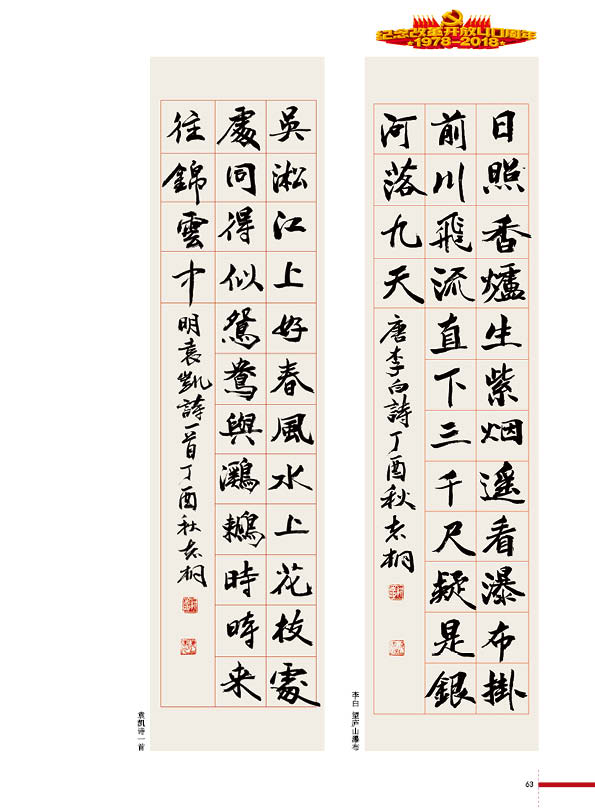 纪念改革开放40周年
1978-2018
日照香爐生紫烟遥看瀑布掛
前川飛流直下三千尺疑是銀
河落九天
唐李白詩丁酉秋志桐
李白 望庐山瀑布
吳淞江上好春風水上花枝處
處同得似鴛鴦與鸂鶒時時来
往錦雲中
明袁凱詩一首丁酉秋志桐
袁凯诗一首
63